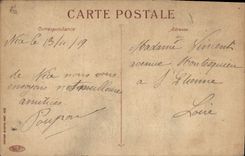 CARTE POSTALE
Correspondance
Adresse
Nice le 13/11/9
de Nice nous vous
envoyons nos meilleures
amitiés
Madame Vincent
avenue
à St Etienne
Loire